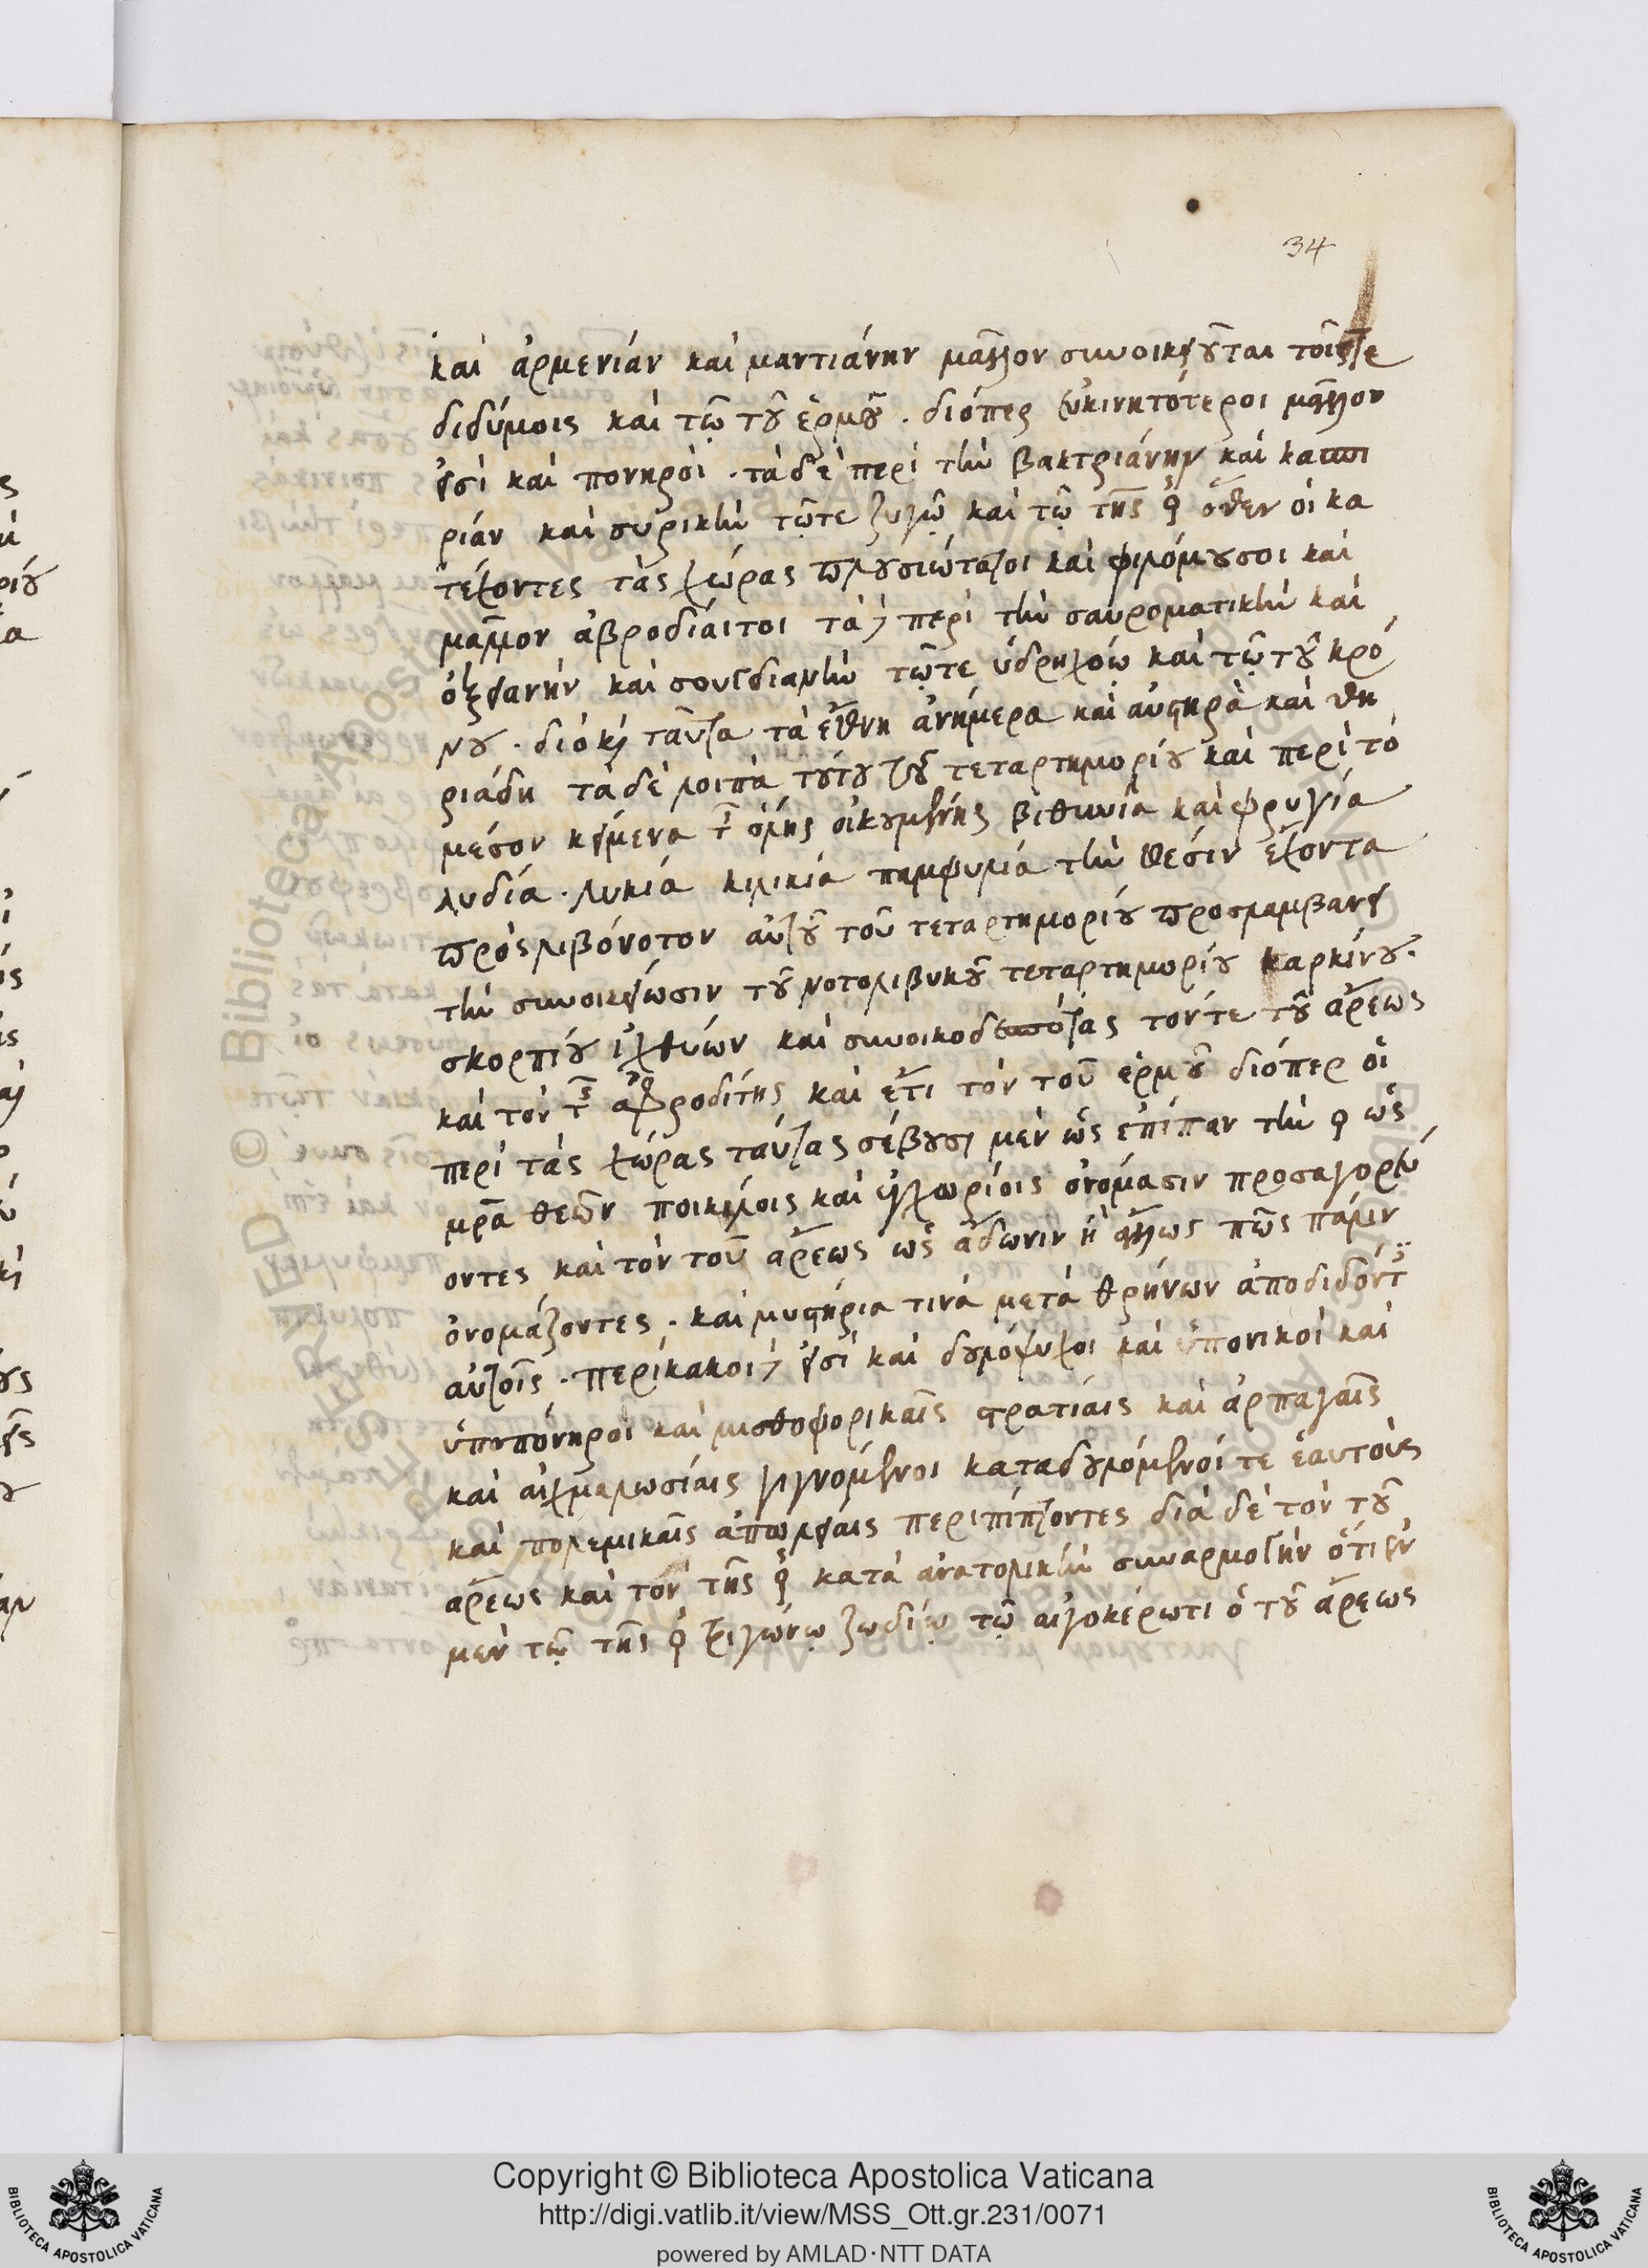 34
καὶ ἀρμενίαν καὶ μαντιάνην μᾶλλον συνοικειοῦται τοῖςτε
διδύμοις καὶ τῶ τοῦ ἑρμοῦ . διόπερ εὐκινητότεροι μᾶλλον
εἰσὶ καὶ πονηροὶ . τὰ δὲ περὶ τὴν βακτριάνην καὶ κασπι
ρίαν καὶ συρικὴν τῶτε ζυγῶ καὶ τῶ τῆς ♀ ὅθεν οἱ κα
τέχοντες τὰς χώρας πλουσιώτατοι καὶ φιλόμουσοι καὶ
μᾶλλον ἁβροδίαιτοι τὰ δὲ περὶ τὴν σαυροματικὴν καὶ
ὀξειανὴν καὶ σουγδιανὴν τῶτε ὑδρηχόω καὶ τῶ τοῦ κρό
νου . διὸ καὶ ταῦτα τὰ ἔθνη ἀνήμερα καὶ αὐστηρὰ καὶ θη
ριάδη τὰ δὲ λοιπὰ τούτου τοῦ τεταρτημορίου καὶ περὶ τὸ
μέσον κείμενα τῆς ὅλης οἰκουμένης βιθυνία καὶ φρυγία
λυδία . λυκία κιλικία παμφυλία τὴν θέσιν ἔχοντα
πρὸς λιβόνοτον αὐτοῦ τοῦ τεταρτημορίου προσλαμβάνει
τὴν συνοικείωσιν τοῦ νοτολιβυκοῦ τεταρτημορίου καρκίνου .
σκορπίου ἰχθύων καὶ συνοικοδεσπότας τόντε τοῦ ἄρεως
καὶ τὸν τῆς ἀφροδίτης καὶ ἔτι τὸν τοῦ ἑρμοῦ διόπερ οἱ
περὶ τὰς χώρας ταύτας σέβουσι μὲν ὡς ἐπίπαν τὴν ♀ ὡς
μρα θεῶν ποικίλοις καὶ ἐγχωρίοις ὀνόμασιν προσαγορεύ
οντες καὶ τὸν τοῦ ἄρεως ὡς ἄδωνιν ἢ ἄλλως πῶς πάλιν
ὀνομάζοντες . καὶ μυστήρια τινὰ μετὰ θρήνων ἀποδιδόντες
αὐτοῖς . περίκακοι δὲ εἰσὶ καὶ δουλόψυχοι καὶ ὑπονικοὶ καὶ
ὑποπόνηροι καὶ μισθοφορικαῖς στρατίαις καὶ ἁρπαγαῖς
καὶ αἰχμαλωσίαις γιγνόμενοι καταδουλόμενοί τε ἑαυτοὺς
καὶ πολεμικαῖς ἀπωλείαις περιπίπτοντες διὰ δὲ τὸν τοῦ
ἄρεως καὶ τὸν τῆς ♀ κατὰ ἀνατολικὴν συναρμογὴν ὅτι ἐν
μὲν τῶ τῆς ♀ τριγώνω ζωδίω τῶ αἰγοκέρωτι ὁ τοῦ ἄρεως
Copyright © Biblioteca Apostolica Vaticana
http://digi.vatlib.it/view/MSS_Ott.gr.231/0071
powered by AMLAD·NTT DATA
BIBLIOTECA APOSTOLICA VATICANA
BIBLIOTECA APOSTOLICA VATICANA